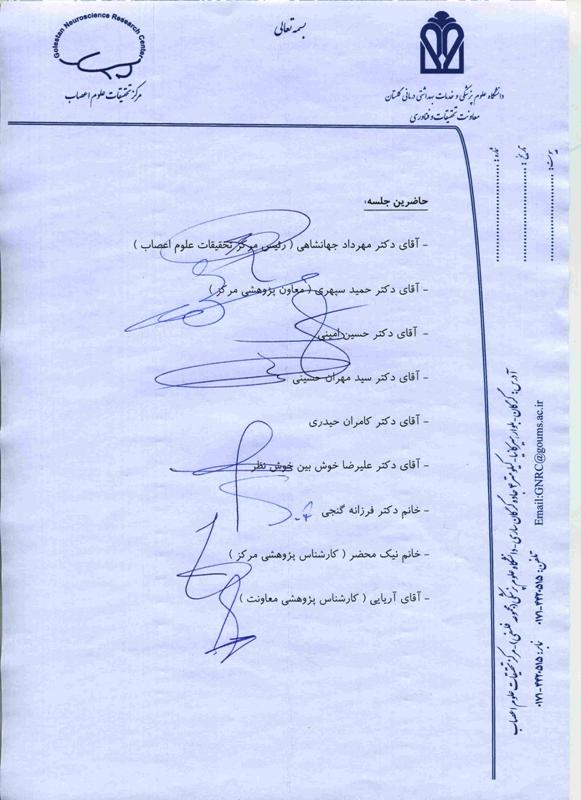 Golestan Neuroscience Research Center
مرکز تحقیقات علوم اعصاب
بسمه تعالی
دانشگاه علوم پزشکی و خدمات بهداشتی درمانی گلستان
معاونت تحقیقات و فناوری
شماره:
تاریخ:
پیوست:
حاضرین جلسه:
- آقای دکتر مهرداد جهانشاهی ( رئیس مرکز تحقیقات علوم اعصاب )
- آقای دکتر حمید سپهری ( معاون پژوهشی مرکز )
- آقای دکتر حسین امینی
- آقای دکتر سید مهران حسینی
- آقای دکتر کامران حیدری
- آقای دکتر علیرضا خوش بین خوش نظر
- خانم دکتر فرزانه گنجی
- خانم نیک محضر ( کارشناس پژوهشی مرکز )
- آقای آریایی ( کارشناس پژوهشی معاونت )
آدرس: گرگان- بلوار هیرکانیا- کیلومتر ۴ جاده گرگان ساری- دانشگاه علوم پزشکی (مجموعه فلسفی)- مرکز تحقیقات علوم اعصاب
تلفن: ۰۱۷۱-۴۴۲۰۵۱۵ نمابر: ۰۱۷۱-۴۴۲۰۵۱۵
Email:GNRC@goums.ac.ir